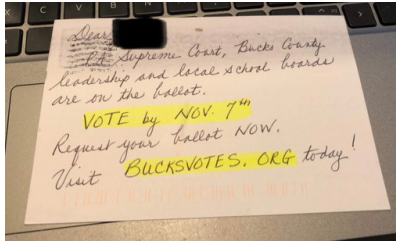 Dear
PA Supreme Court, Bucks County
leadership and local school boards
are on the ballot.
VOTE by NOV. 7th
Request your ballot NOW.
Visit BUCKSVOTES.ORG today!